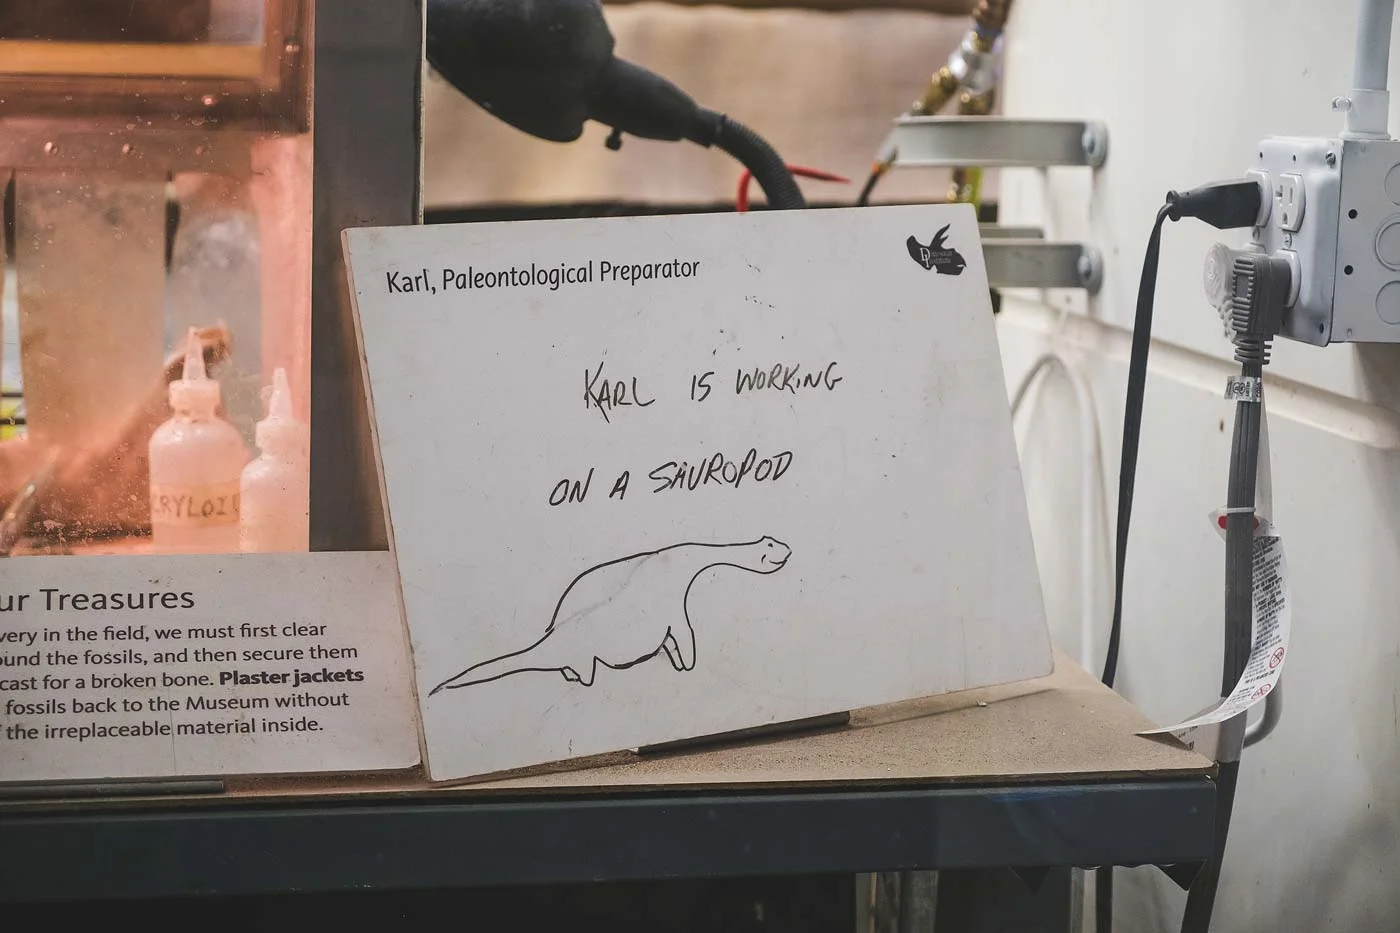 Karl, Paleontological Preparator
KARL IS WORKING
ON A SAUROPOD
ur Treasures
very in the field, we must first clear
ound the fossils, and then secure them
cast for a broken bone. Plaster jackets
fossils back to the Museum without
f the irreplaceable material inside.